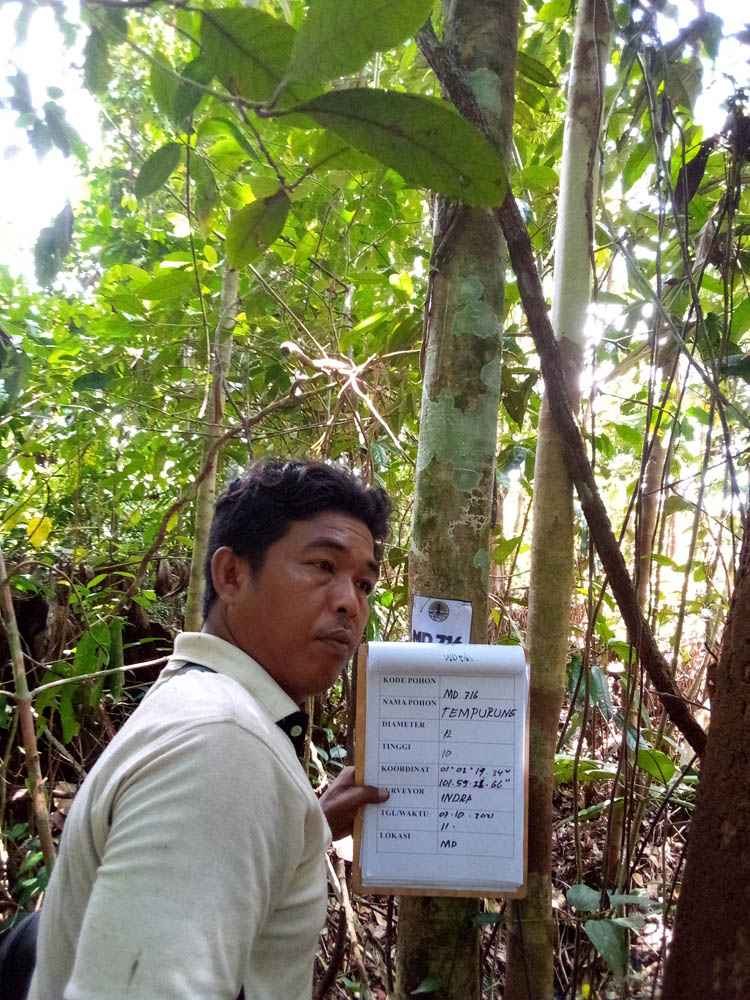 MD 716
KODE POHON MD 716
NAMA POHON TEMPURUNG
DIAMETER 12
TINGGI 10
KOORDINAT 01.02.19.34"
101.59.28.66"
SURVEYOR INDRA
TGL/WAKTU 07.10.2021
11.
LOKASI MD